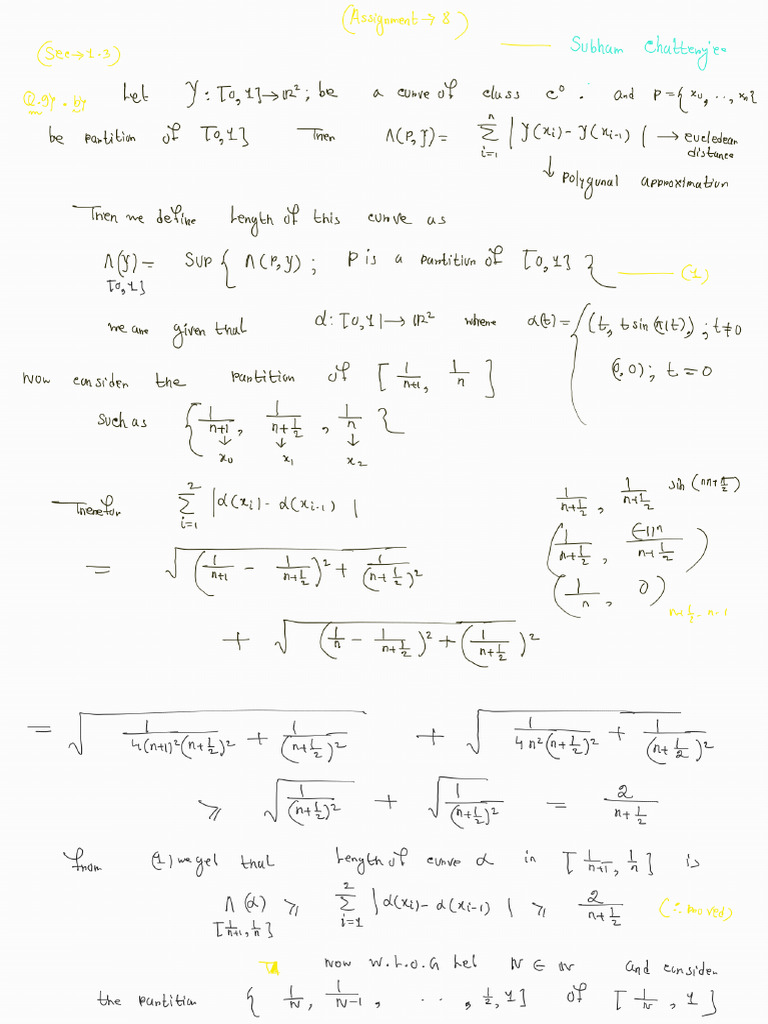 (Assignment → 8)
Subham Chatterjee
(Sec → 1.3)
Q.9). b)
Let γ : [0,1] → ℝ² ; be a curve of class C⁰ . and P = { x₀, . ., xₙ}
be partition of [0,1] Then Λ(P,γ) = Σ_{i=1}^{n} | γ(xᵢ) - γ(xᵢ₋₁) | → eucledean distance
↓ polygonal approximation
Then we define length of this curve as
Λ(γ) = Sup { Λ(P,γ) ; P is a partition of [0,1] } —— (1)
[0,1]
we are given that α : [0,1] → ℝ² where α(t) = { (t, t sin(π/t)) ; t≠0
(0,0) ; t = 0
Now consider the partition of [ 1/(n+1), 1/n ]
such as { 1/(n+1), 1/(n+1/2), 1/n }
↓ ↓ ↓
x₀ x₁ x₂
Therefor Σ_{i=1}^{2} | α(xᵢ) - α(xᵢ₋₁) |
1/(n+1/2), 1/(n+1/2) sin(nπ+π/2)
= √( (1/(n+1) - 1/(n+1/2))² + 1/(n+1/2)² )
( 1/(n+1/2), (-1)ⁿ/(n+1/2) )
( 1/n, 0 )
n+1/2 - n-1
+ √( (1/n - 1/(n+1/2))² + (1/(n+1/2))² )
= √( 1/(4(n+1)²(n+1/2)²) + 1/(n+1/2)² ) + √( 1/(4n²(n+1/2)²) + 1/(n+1/2)² )
≥ √( 1/(n+1/2)² ) + √( 1/(n+1/2)² ) = 2/(n+1/2)
from (1) we get that length of curve α in [ 1/(n+1), 1/n ] is
Λ(α) ≥ Σ_{i=1}^{2} | α(xᵢ) - α(xᵢ₋₁) | ≥ 2/(n+1/2) (∴ proved)
[1/(n+1), 1/n]
Now W.L.O.G let N ∈ ℕ and consider
the partition { 1/N, 1/(N-1), . . , 1/2, 1 } of [ 1/N, 1 ]